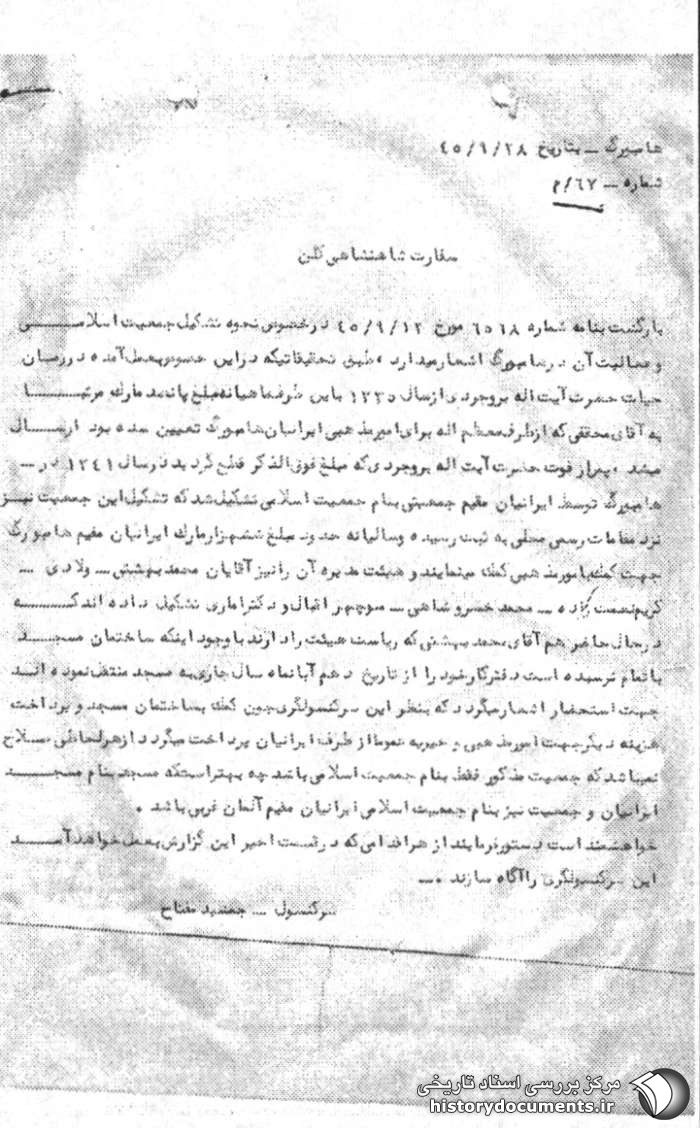 هامبورگ – بتاریخ ۴۵/۹/۲۸
شماره – ۶۷/م
سفارت شاهنشاهی کلن
بازگشت بنامه شماره ۶۵۱۸ مورخ ۴۵/۹/۱۲ در خصوص نحوه تشکیل جمعیت اسلامی
و فعالیت آن در هامبورگ اشعار میدارد، طبق تحقیقاتیکه در این خصوص بعمل آمده در زمان
حیات حضرت آیت اله بروجردی از سال ۱۳۳۵ باین طرف ماهیانه مبلغ پانصد مارک مرتبا
به آقای محققی که از طرف معظم اله برای امور مذهبی ایرانیان هامبورگ تعیین شده بود ارسال
میشد، پس از فوت حضرت آیت اله بروجردی که مبلغ فوق الذکر قطع گردید در سال ۱۳۴۱ در –
هامبورگ توسط ایرانیان مقیم جمعیتی بنام جمعیت اسلامی تشکیل شد که تشکیل این جمعیت نیز
نزد مقامات رسمی محلی به ثبت رسیده و سالیانه حدود مبلغ ششهزار مارک ایرانیان مقیم هامبورگ
جهت کمک بامور مذهبی کمک مینمایند و هیئت مدیره آن را نیز آقایان محمد بهشتی – ولادی –
کریم نعمت زاده – محمد خسروشاهی – منوچهر اقبال و دکتر اماری تشکیل داده اند که
در حال حاضر هم آقای محمد بهشتی که ریاست هیئت را دارند با وجود اینکه ساختمان مسجد
باتمام نرسیده است دفتر کار خود را از تاریخ دهم آبانماه سال جاری به مسجد منتقل نموده اند
جهت استحضار اشعار میگردد که بنظر این سرکنسولگری چون کمک بساختمان مسجد و پرداخت
هزینه دیگر جهت امور مذهبی و خیریه عموما از طرف ایرانیان پرداخت میگردد از هر لحاظی صلاح
نمیباشد که جمعیت مذکور فقط بنام جمعیت اسلامی باشد چه بهتر استکه مسجد بنام مسجد
ایرانیان و جمعیت نیز بنام جمعیت اسلامی ایرانیان مقیم آلمان غربی باشد .
خواهشمند است دستور فرمایند از هر اقدامی که در قسمت اخیر این گزارش بعمل خواهد آمد
این سرکنسولگری را آگاه سازند .–
سرکنسول – جمشید مفتاح
مرکز بررسی اسناد تاریخی
historydocuments.ir